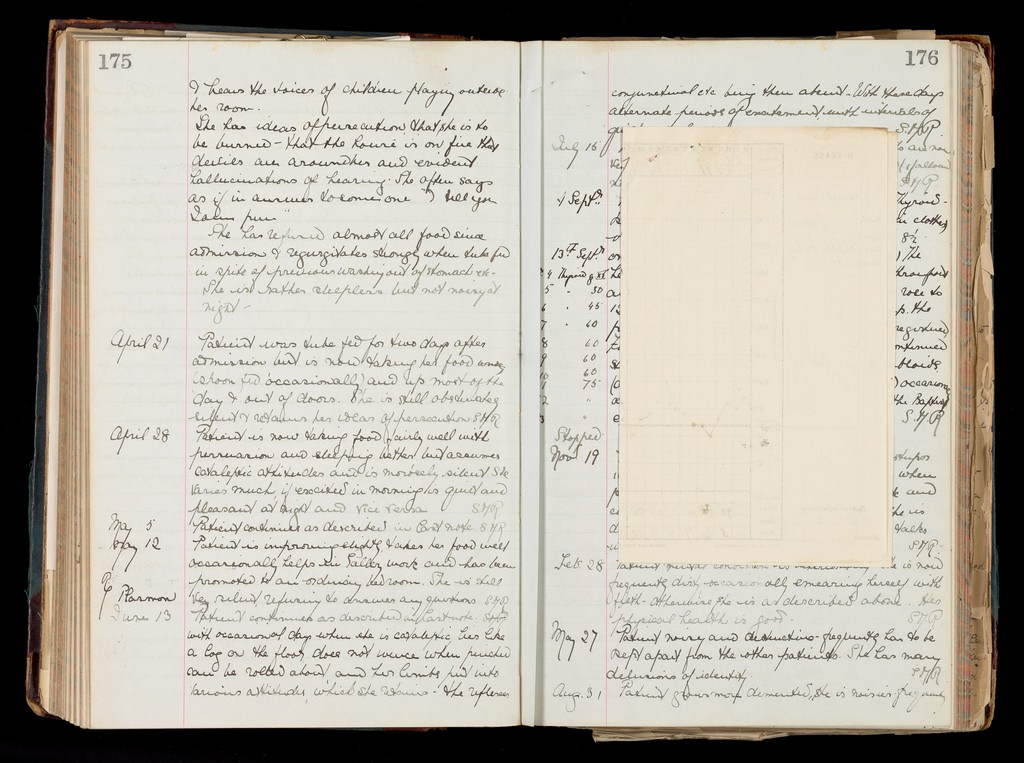 175
& hears the voices of children playing outside
her room.
She has ideas of persecution, that she is to
be burned - that the house is on fire that
devils are around her and evident
hallucinations of hearing. She often says
as if in answer to some one "I tell you
I am pure"
She has refused almost all food since
admission & regurgitates strongly when tube fed
in spite of previous washing out of stomach etc -
She is rather sleepless but not noisy at
night -
April 21 Patient was tube fed for two days after
admission but is now taking her food
(spoon fed occasionally) and up most of the
day & out of doors. She is still obstinate
silent & retains her ideas of persecution S.H.R
April 28 Patient is now taking food fairly well with
persuasion and sleeping better but assumes
cataleptic attitudes and is morosely silent She
varies much, if excited in morning is quiet and
pleasant at night and vice versa S.H.R
May 5 Patient continues as described in last note S.H.R
May 12 Patient is improving slightly takes her food well
occasionally helps in work and has been
promoted to an ordinary bedroom. She is still
very silent refusing to answer any questions S.H.R
June 13 Patient continues as described in last note
with occasional days when she is cataleptic lies like
a log on the floor, does not wince when pinched
can be rolled about and her limbs put into
various attitudes, which she retains - the reflexes
176
conjunctival etc being then absent - With these days
alternate periods of excitement with intervals of
S.H.R.
July 15
S.H.R
4 Sept.
Thyroid -
in clothes
8½
13th Sept. The
4 Thyroid gr
5 " 30
6 " 45
7 " 60
8 60
9 60
10 60
11 75
the
registered
continued
occasion
the Baptist
S.H.R
Stopped
Nov 19
stupor
when
and
talks
S.H.R.
Feb 28 Patient is now
frequently dirty occasionally smearing herself with
filth - otherwise she is as described above. Her
physical health is good. S.H.R
May 27 Patient noisy and destructive - frequently has to be
kept apart from the other patients. She has many
delusions of identity. S.H.R
Aug. 31 Patient grows more demented, she is noisier, frequently